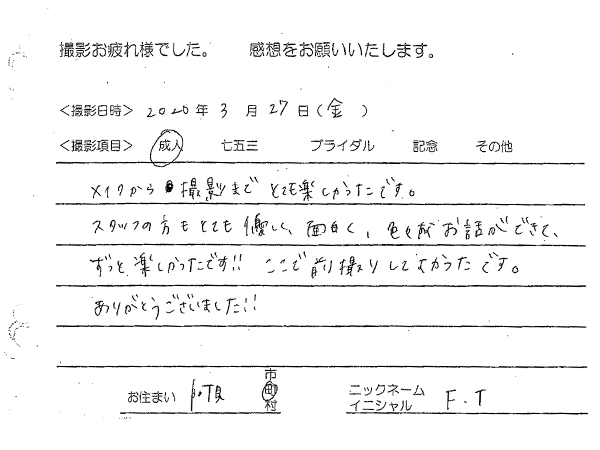 撮影お疲れ様でした。 感想をお願いいたします。
<撮影日時> 2020年 3月 27日(金)
<撮影項目> 成人 七五三 ブライダル 記念 その他
メイクから撮影まで とても楽しかったです。
スタッフの方もとても優しく、面白く、色々なお話ができて、
ずっと楽しかったです!! ここで前撮りしてよかったです。
ありがとうございました!!
お住まい 市町村 ニックネーム イニシャル F.T